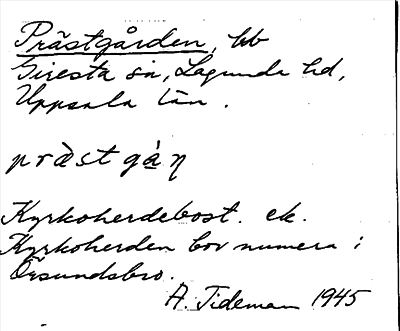 Prästgården, bb
Giresta sn, Lagunda hd,
Uppsala län.
pròstgà̤ṇ
Kyrkoherdebost. ek.
Kyrkoherden bor numera i
Örsundsbro.
A. Tideman 1945